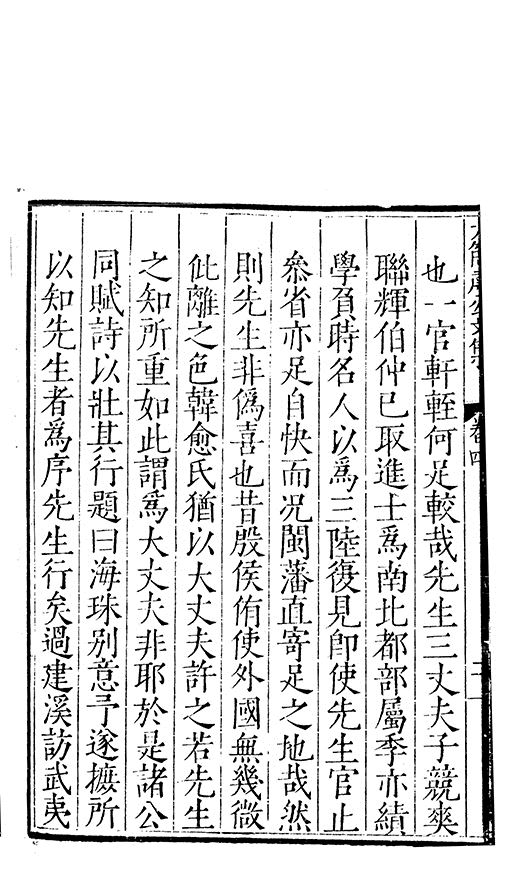 也一官軒輊何足較哉先生三丈夫子競爽
聯輝伯仲已取進士為南北都部屬季亦績
學負時名人以為三陸復見卽使先生官止
叅省亦足自快而况閩藩直寄足之地哉然
則先生非僞喜也昔殷侯侑使外國無幾微
仳離之色韓愈氏猶以大丈夫許之若先生
之知所重如此謂為大丈夫非耶於是諸公
同賦詩以壯其行題曰海珠別意予遂摭所
以知先生者為序先生行矣過建溪訪武夷
卷四